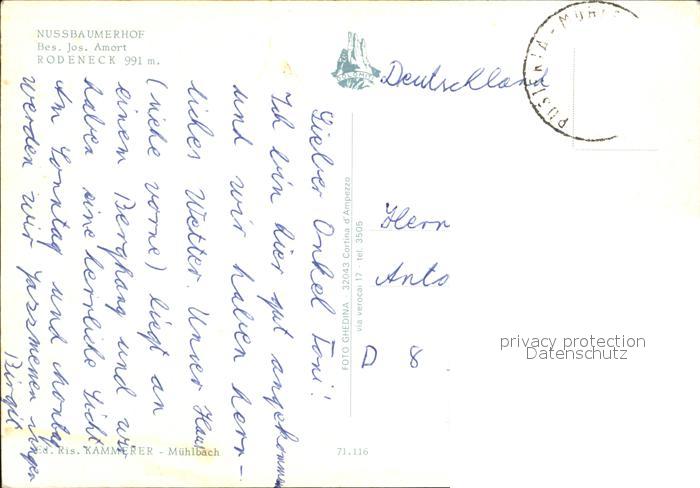 NUSSBAUMERHOF
Bes. Jos. Amort
RODENECK 991 m.
Lieber Onkel Toni!
Ich bin hier gut angekommen
und wir haben herr-
liches Wetter. Unser Haus
(siehe vorne) liegt an
einem Berghang und wir
haben eine herrliche Sicht.
Am Sonntag und Montag
werden wir
Birgit
Ris. KAMMERER - Mühlbach
71.116
FOTO GHEDINA 32043 Cortina d'Ampezzo
via verocai 17 tel. 3505
Deutschland
Herrn
Anto
D 8
privacy protection
Datenschutz